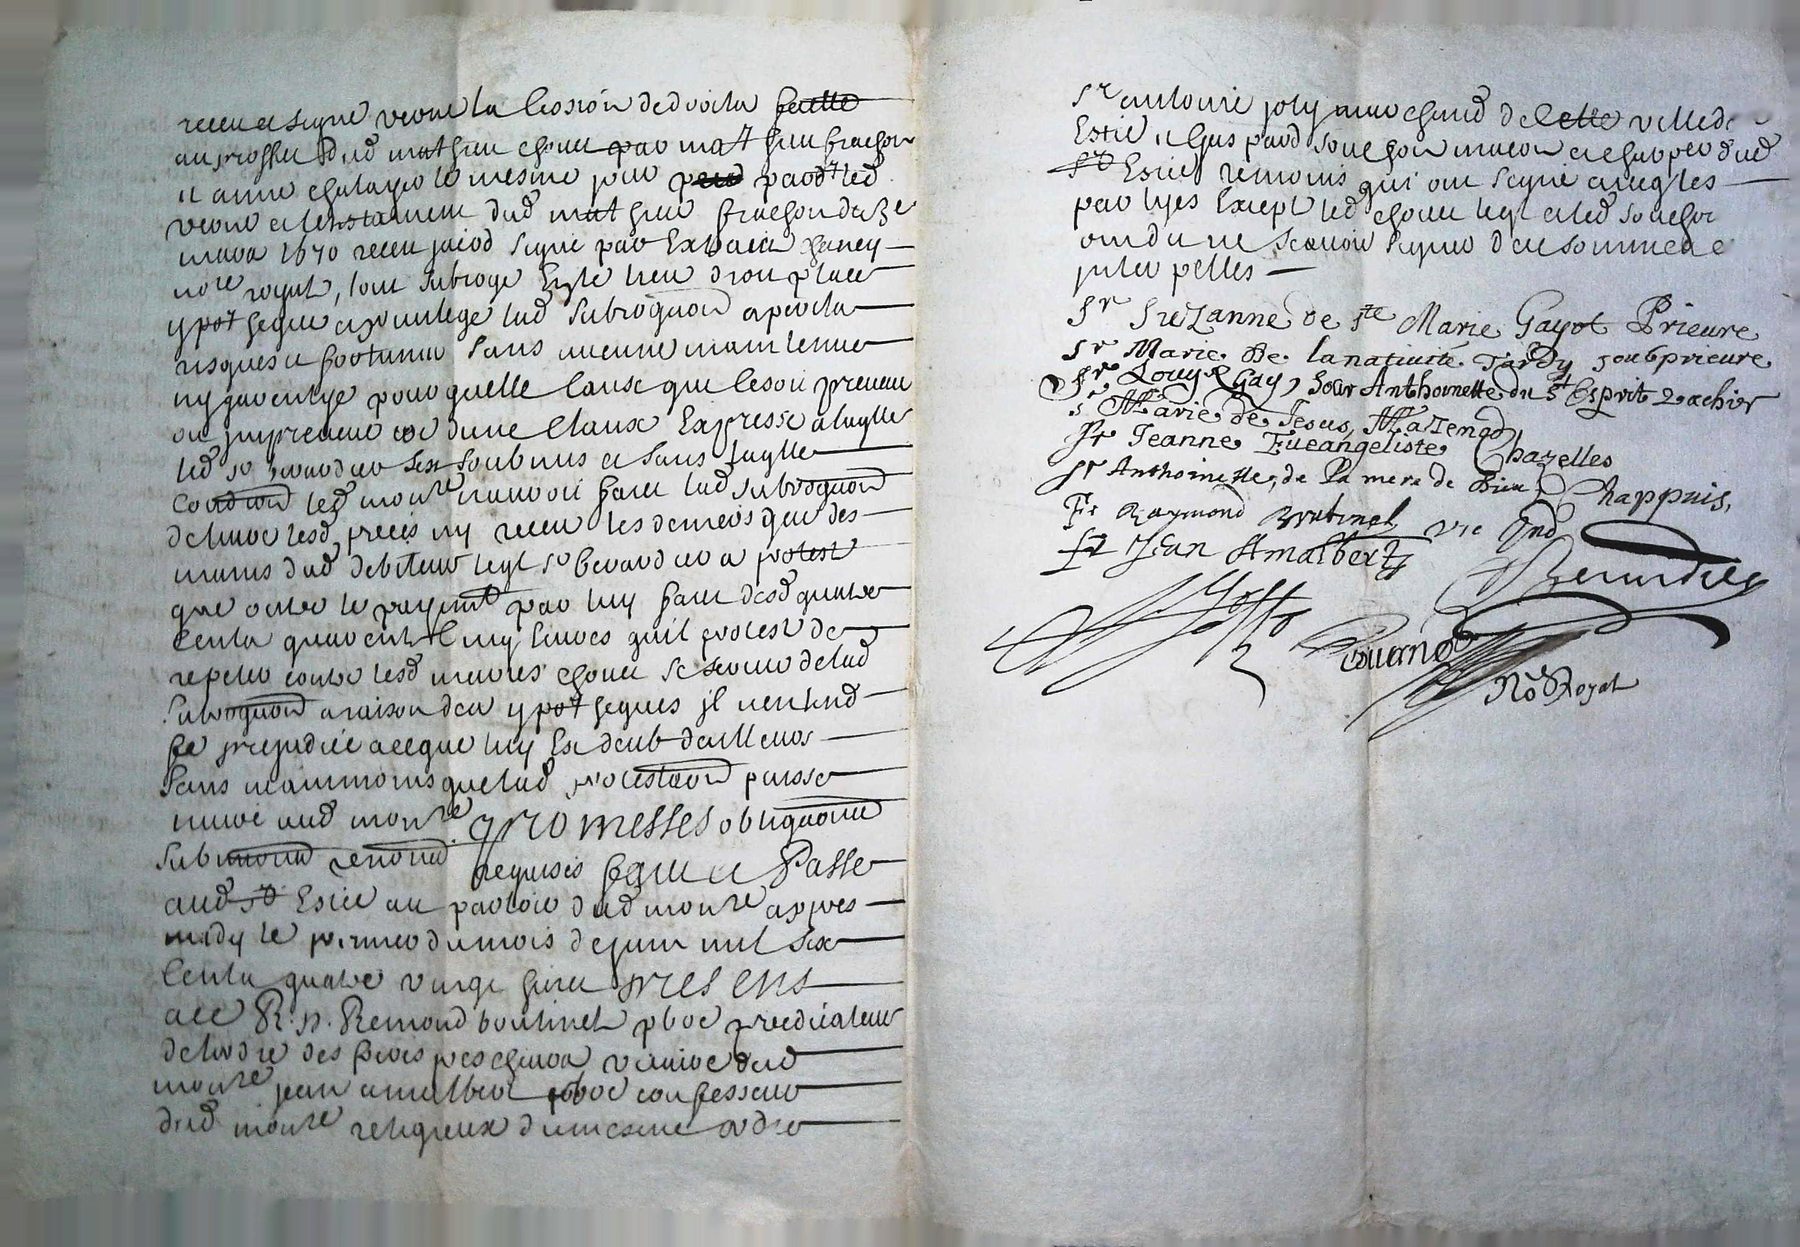 receu et signé veyne la cession de droicts faitte
au proffit dud mathieu chover par mat hieu frachon
et anne chalayer le mesme jour par led
veyne et lenstrument dud mat hieu frachon du 3e
mars 1670 receu par signé par Extraict chaney
nore royal, lont subrogé En le lieu droit place
ypot heque et privilege lad subrogaon a perils
risques et fortunes sans aucune maintenue
ny garentye pour quelle cause que ce soit preveue
ou jmpreveue car dune clause Expresse a laqlle
led sr berardier sest soubmis et sans laqlle
condion led monre nauroit faict lad subrogaon
delivré lesd pieces ny receu les deniers que des
mains dud debiteur leql sr berardier a protesté
que oultre le payemt par luy faict desd quatre
cents quarente cinq livres quil proteste de
repeter contre lesd mariés chover se servir de lad
subrogaon a raison des ypot heques jl nentend
se prejudicier a ce que luy Est deub dailleurs
sans neanmoins que lad protestaon puisse
nuire aud monre. promesses obligaons
submions renons requises faict et Passé
aud st Estie au parloir dud monre appres
midy le premier du mois de juin mil six
cents quatre vingt huict presens
ace R. p. Remond boutinel pbre predicateur
de lordre des freres prescheurs vicaire dud
monre jean amalbert pbre confesseur
dud monre religieux du mesme ordre
Sr antoine joly marchand de cette ville de
Estie et Gaspard souchon maçon et charper dud
st Estie temoins qui ont signé avecq les
parties Except led chover leql et led souchon
ont dit ne scavoir signer de ce sommé et
jnterpellés
Sr Suzanne de Ste Marie Gayot Prieure
Sr Marie De la natiuité Tardy soubprieure
Sr Louyse Gay, Sœur Anthoinette du St Esprit Vachier
Sr Marie de Jesus Mallenod
Sr Jeanne Eueangeliste Chazelles
Sr Anthoinette, de La mere de Dieu Chappuis,
Fr Raymond Brutinel vic Ind
Fr Jean Amalbert
Berardier
Joly
Guerin
No Royal